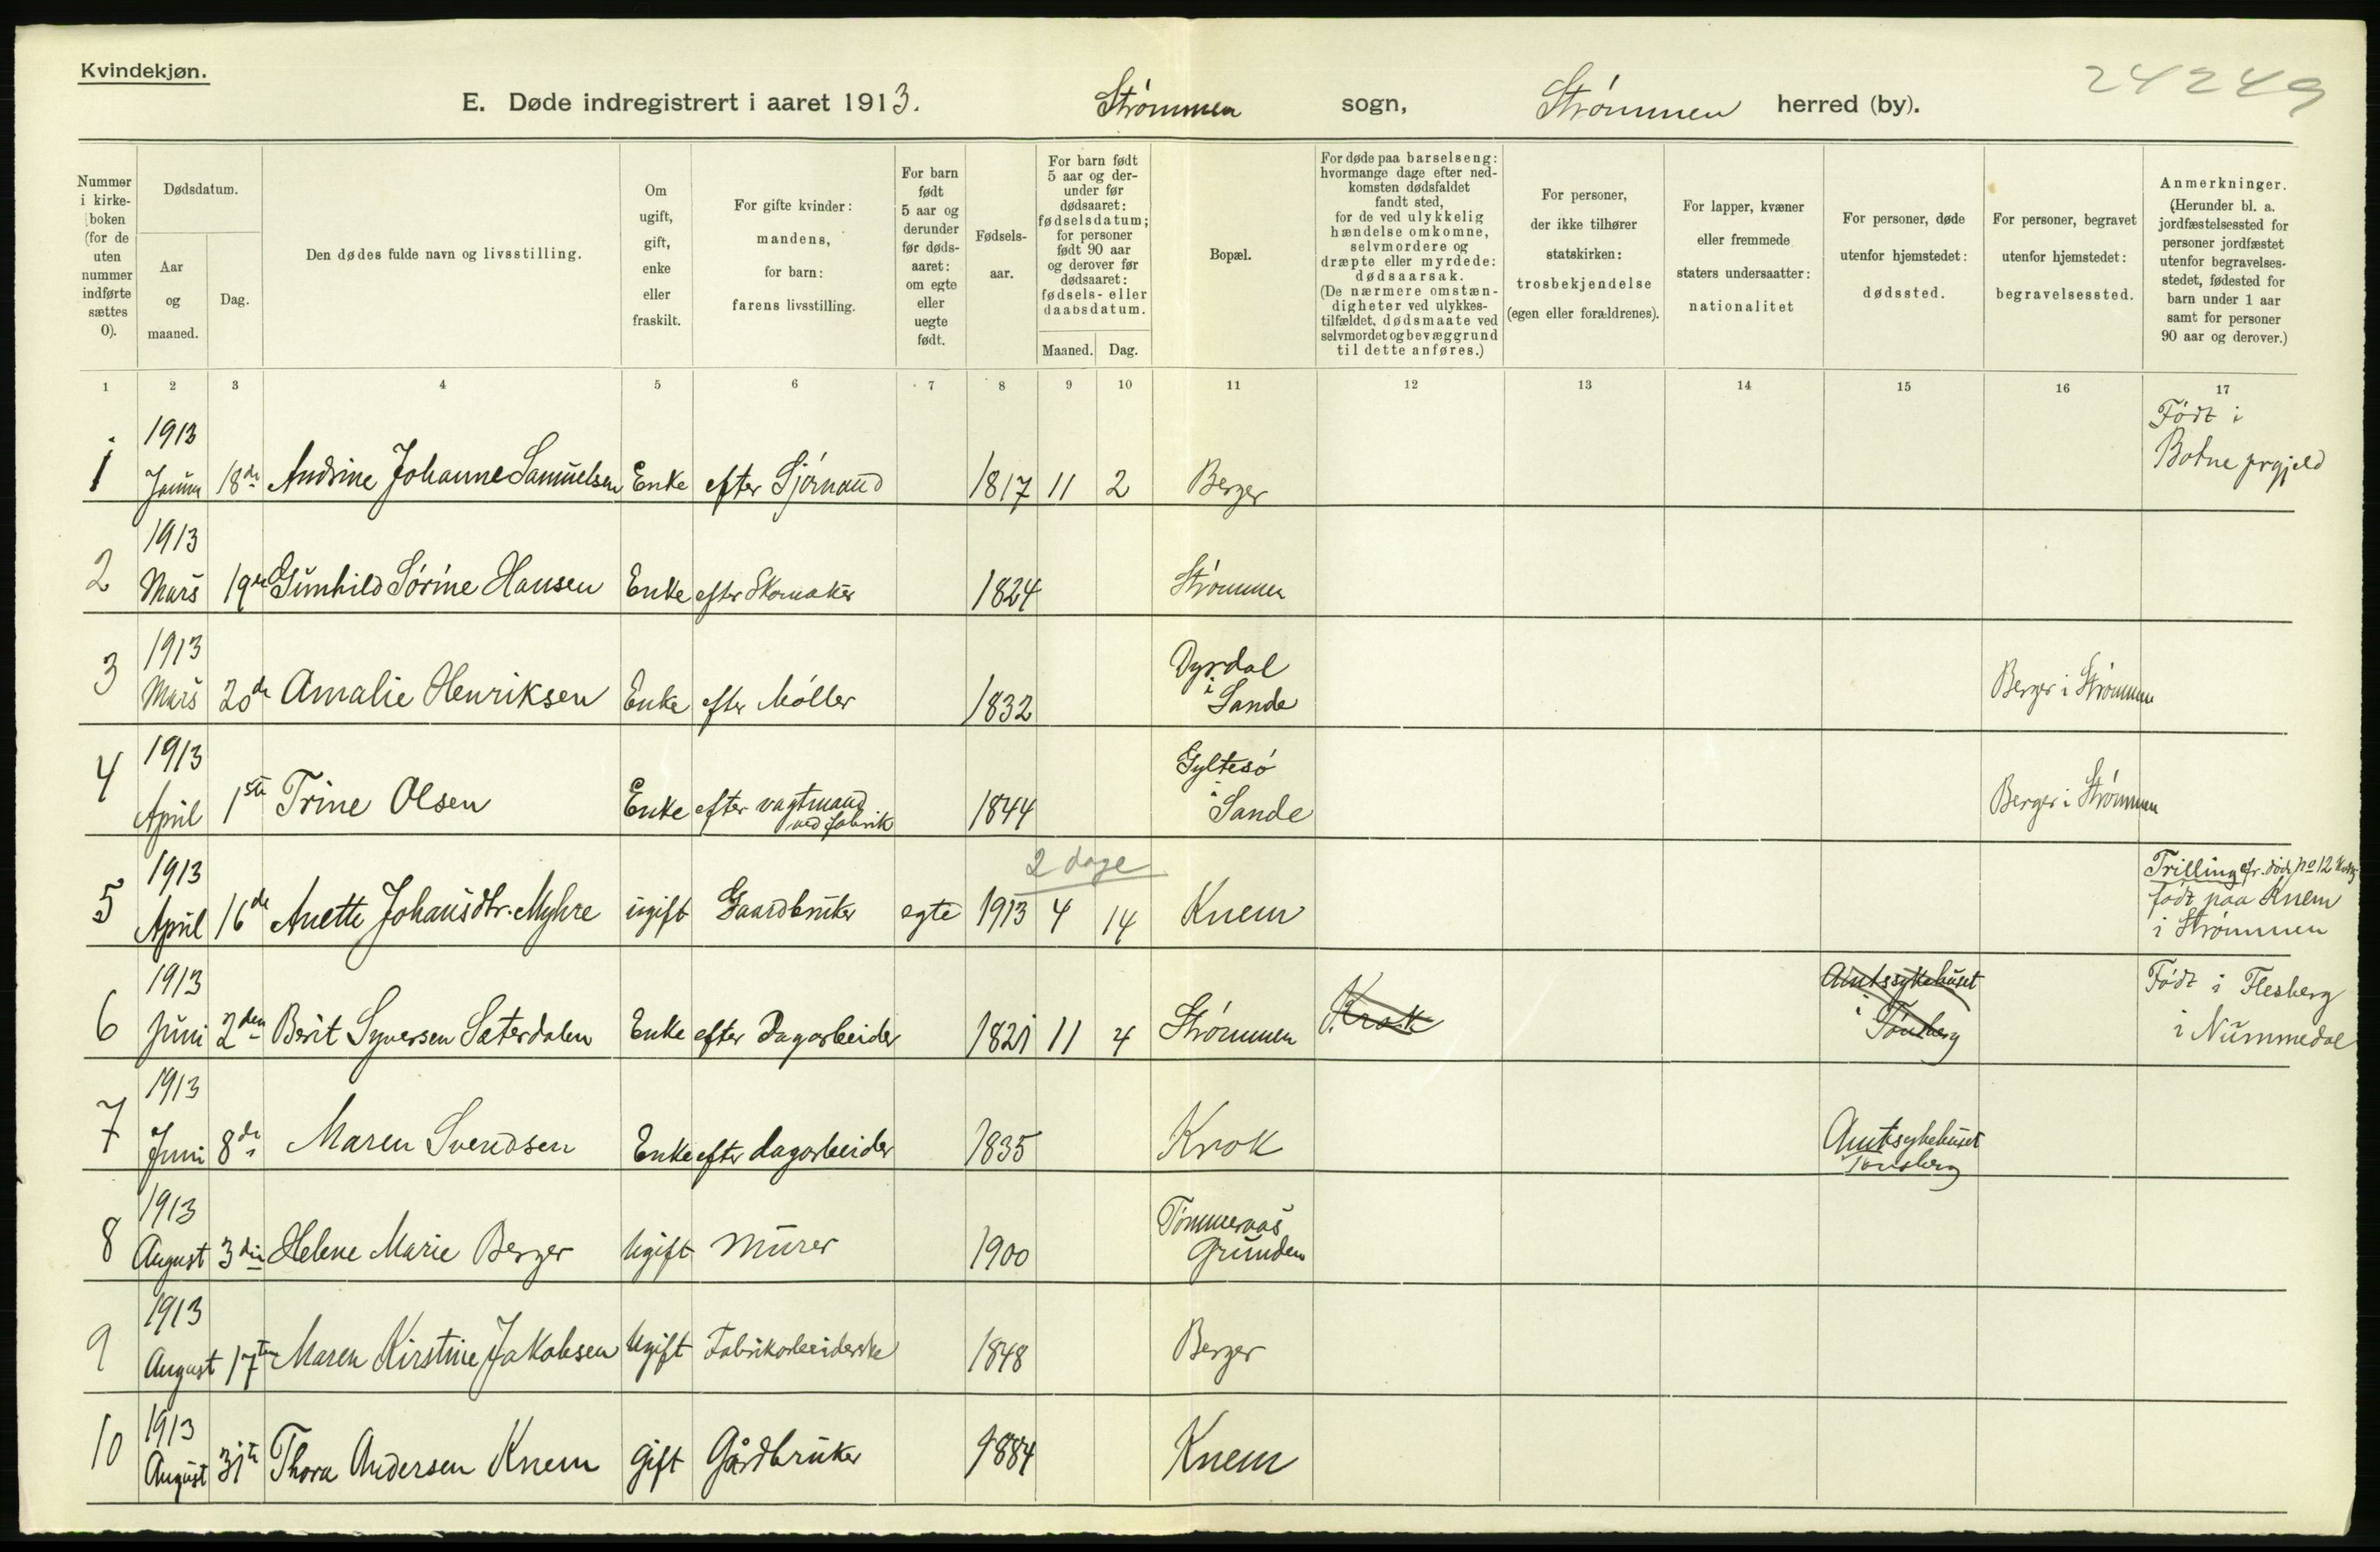 Kvindekjøn.
24249
E. Døde indregistrert i aaret 1913. Strømmen sogn, Strømmen herred (by).
Nummer i kirke-boken (for de uten nummer indførte sættes 0).
Dødsdatum.
Aar og maaned.
Dag.
Den dødes fulde navn og livsstilling.
Om ugift, gift, enke eller fraskilt.
For gifte kvinder: mandens, for barn: farens livsstilling.
For barn født 5 aar og derunder før døds-aaret: om egte eller uegte født.
Fødsels-aar.
For barn født 5 aar og der-under før dødsaaret: fødselsdatum; for personer født 90 aar og derover før dødsaaret: fødsels- eller daabsdatum.
Maaned. Dag.
Bopæl.
For døde paa barselseng: hvormange dage efter ned-komsten dødsfaldet fandt sted, for de ved ulykkelig hændelse omkomne, selvmordere og dræpte eller myrdede: dødsaarsak. (De nærmere omstæn-digheter ved ulykkes-tilfældet, dødsmaate ved selvmordet og bevæggrund til dette anføres.)
For personer, der ikke tilhører statskirken: trosbekjendelse (egen eller forældrenes).
For lapper, kvæner eller fremmede staters undersaatter: nationalitet
For personer, døde utenfor hjemstedet: dødssted.
For personer, begravet utenfor hjemstedet: begravelsessted.
Anmerkninger. (Herunder bl. a. jordfæstelsessted for personer jordfæstet utenfor begravelses-stedet, fødested for barn under 1 aar samt for personer 90 aar og derover.)
1 2 3 4 5 6 7 8 9 10 11 12 13 14 15 16 17
1 1913 Januar 18de Andrine Johanne Samuelsen Enke efter Sjømand 1817 11 2 Berger Født i Botne prgjeld
2 1913 Mars 19de Gunhild Sørine Hansen Enke efter Skomaker 1824 Strømmen
3 1913 Mars 20de Amalie Henriksen Enke efter Møller 1832 Dyrdal i Sande Berger i Strømmen
4 1913 April 1ste Trine Olsen Enke efter vagtmand ved fabrik 1844 Gyltesø i Sande Berger i Strømmen
2 dage
5 1913 April 16de Anette Johansdtr. Myhre ugift Gaardbruker egte 1913 4 14 Knem Trilling fr. død no 12 født paa Knem i Strømmen
6 1913 Juni 2den Berit Syversen Sæterdalen Enke efter Dagarbeider 1821 11 4 Strømmen Krok Amtssykehuset i Tønsberg Født i Flesberg i Nummedal
7 1913 Juni 8de Maren Svendsen Enke efter dagarbeider 1835 Krok Amtsykehuset Tønsberg
8 1913 August 3die Helene Marie Berger Ugift Murer 1900 Tømmeraas Grunden
9 1913 August 17te Maren Kirstine Jakobsen Ugift Fabrikarbeiderske 1848 Berger
10 1913 August 31te Thora Andersen Knem Gift Gårdbruker 1884 Knem